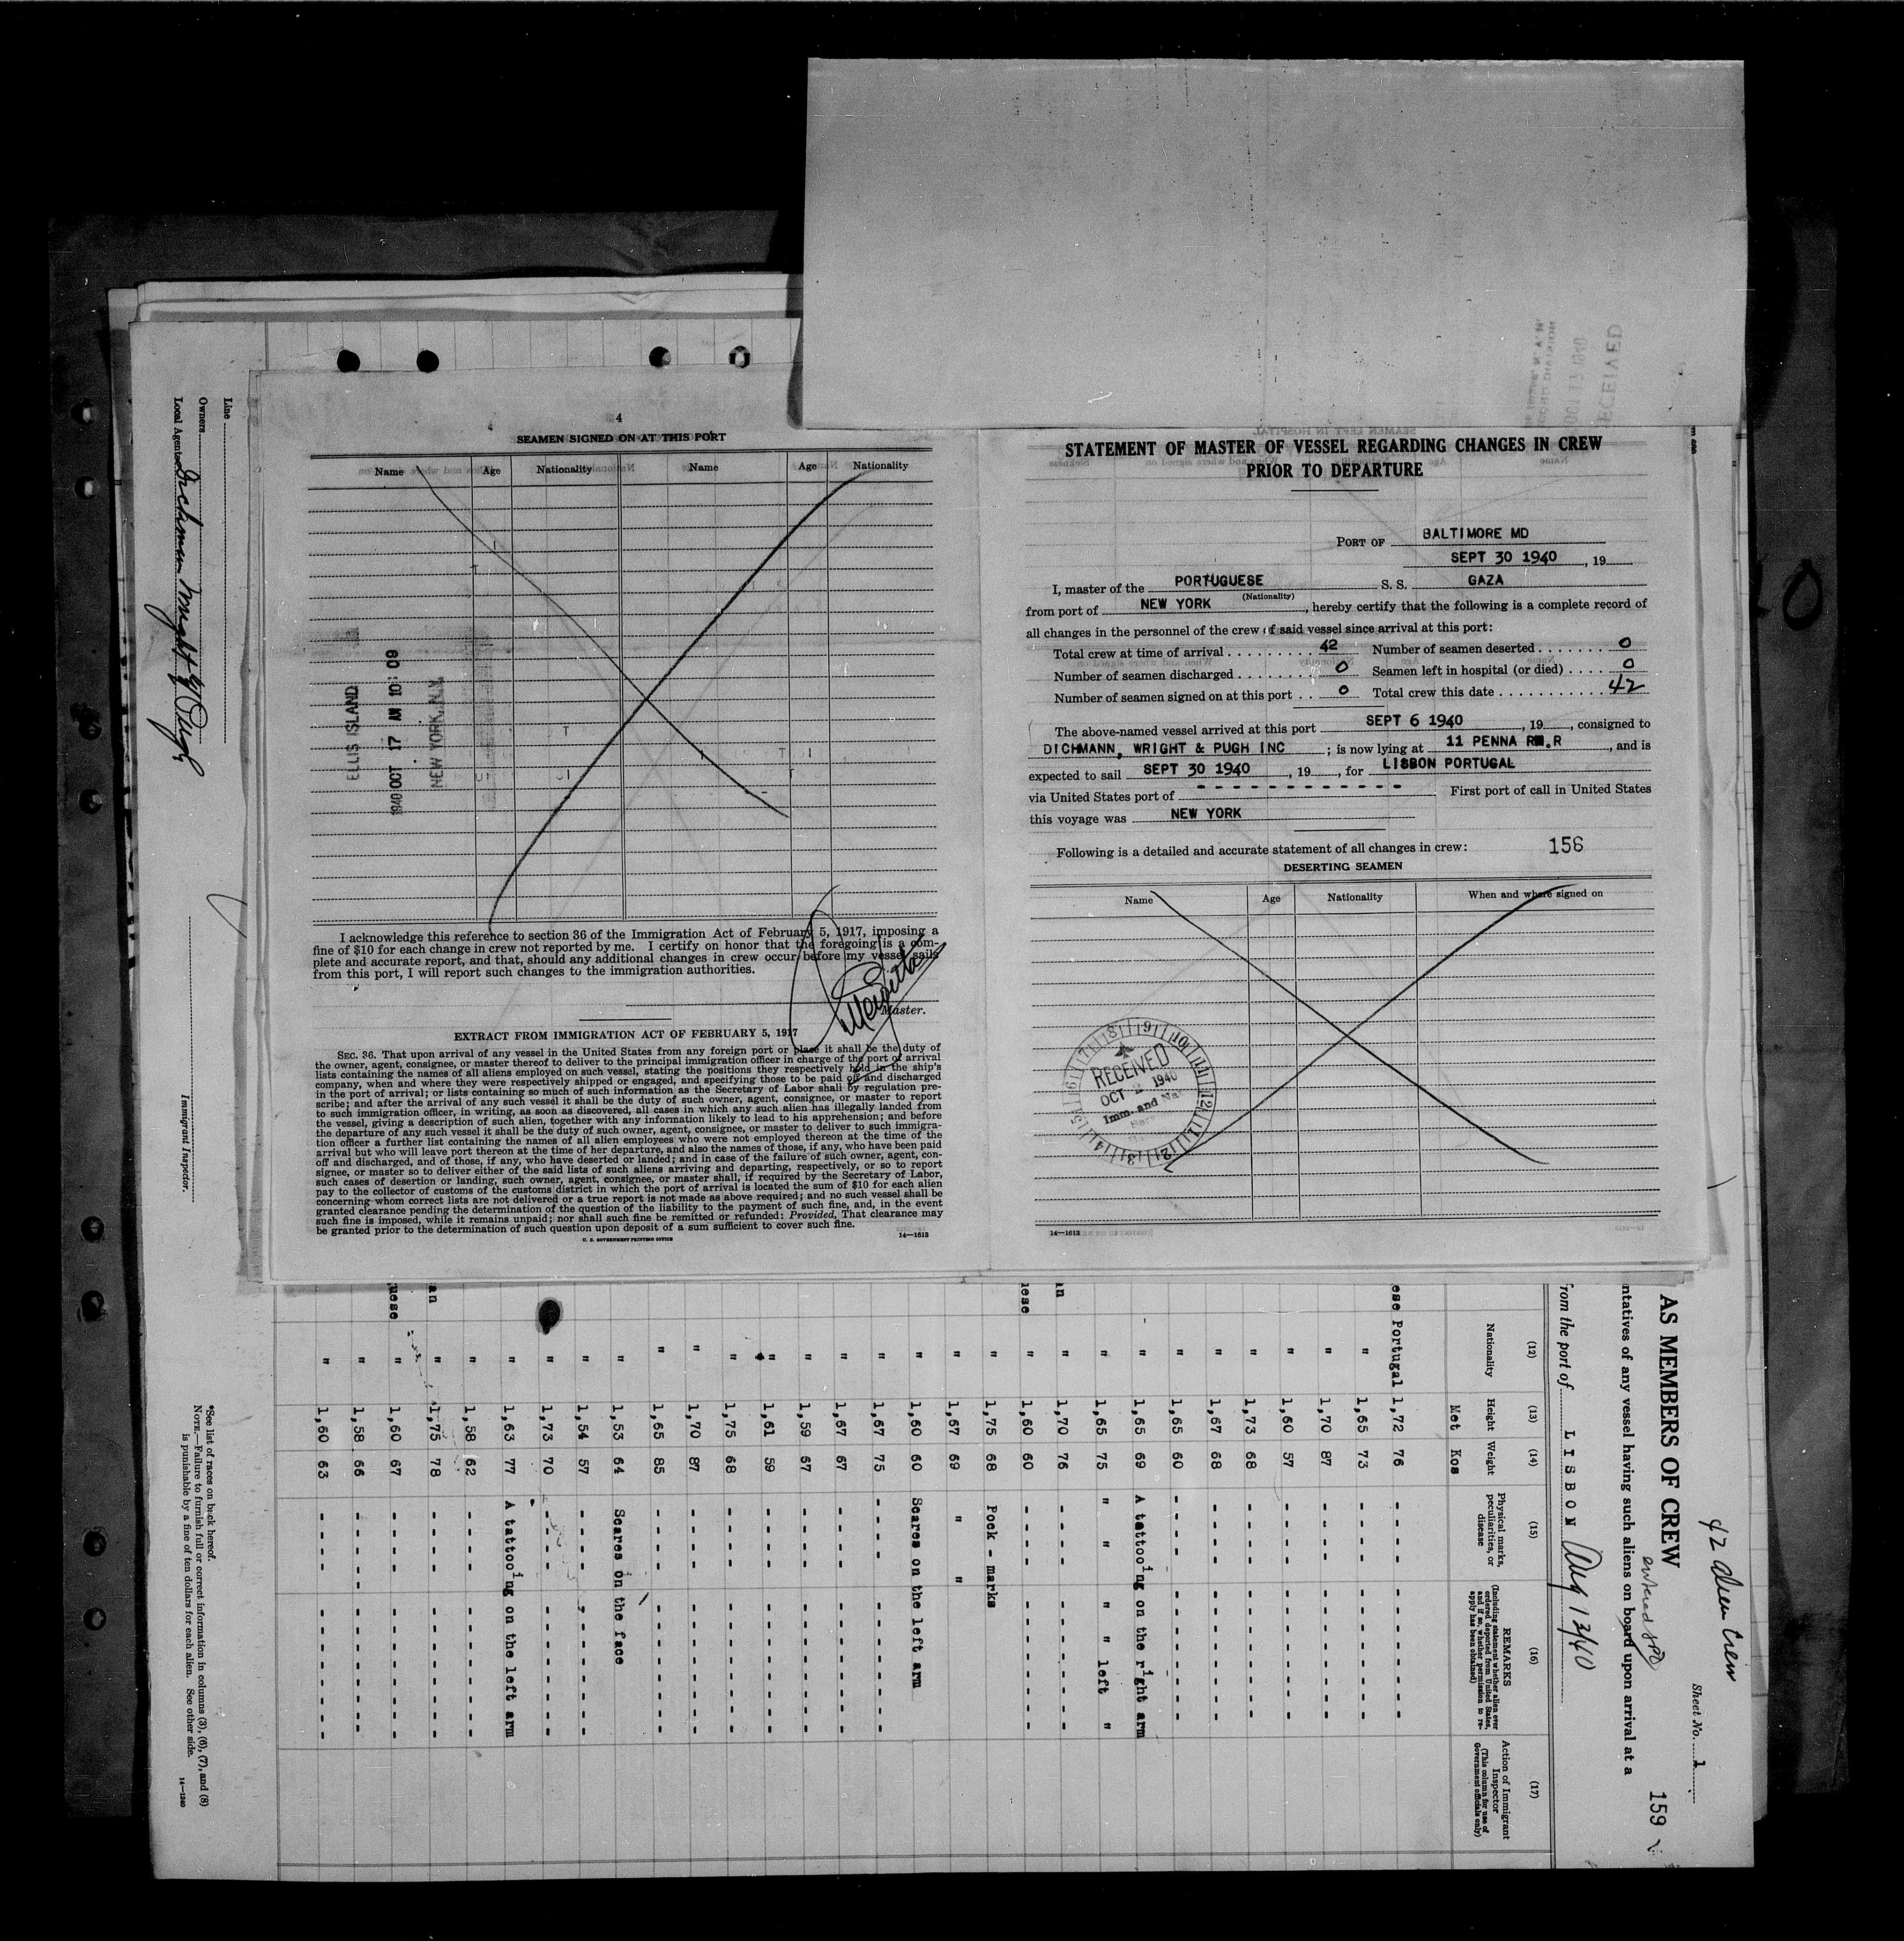 4
SEAMEN SIGNED ON AT THIS PORT
Name Age Nationality Name Age Nationality
ELLIS ISLAND
1940 OCT 17 AM 10: 09
NEW YORK, N.Y.
I acknowledge this reference to section 36 of the Immigration Act of February 5, 1917, imposing a
fine of $10 for each change in crew not reported by me. I certify on honor that the foregoing is a com-
plete and accurate report, and that, should any additional changes in crew occur before my vessel sails
from this port, I will report such changes to the immigration authorities.
Master.
EXTRACT FROM IMMIGRATION ACT OF FEBRUARY 5, 1917
SEC. 36. That upon arrival of any vessel in the United States from any foreign port or place it shall be the duty of
the owner, agent, consignee, or master thereof to deliver to the principal immigration officer in charge of the port of arrival
lists containing the names of all aliens employed on such vessel, stating the positions they respectively hold in the ship's
company, when and where they were respectively shipped or engaged, and specifying those to be paid off and discharged
in the port of arrival; or lists containing so much of such information as the Secretary of Labor shall by regulation pre-
scribe; and after the arrival of any such vessel it shall be the duty of such owner, agent, consignee, or master to report
to such immigration officer, in writing, as soon as discovered, all cases in which any such alien has illegally landed from
the vessel, giving a description of such alien, together with any information likely to lead to his apprehension; and before
the departure of any such vessel it shall be the duty of such owner, agent, consignee, or master to deliver to such immigra-
tion officer a further list containing the names of all alien employees who were not employed thereon at the time of the
arrival but who will leave port thereon at the time of her departure, and also the names of those, if any, who have been paid
off and discharged, and of those, if any, who have deserted or landed; and in case of the failure of such owner, agent, con-
signee, or master so to deliver either of the said lists of such aliens arriving and departing, respectively, or so to report
such cases of desertion or landing, such owner, agent, consignee, or master shall, if required by the Secretary of Labor,
pay to the collector of customs of the customs district in which the port of arrival is located the sum of $10 for each alien
concerning whom correct lists are not delivered or a true report is not made as above required; and no such vessel shall be
granted clearance pending the determination of the question of the liability to the payment of such fine, and, in the event
such fine is imposed, while it remains unpaid; nor shall such fine be remitted or refunded: Provided, That clearance may
be granted prior to the determination of such question upon deposit of a sum sufficient to cover such fine.
U. S. GOVERNMENT PRINTING OFFICE
14—1613
STATEMENT OF MASTER OF VESSEL REGARDING CHANGES IN CREW
PRIOR TO DEPARTURE
PORT OF BALTIMORE MD
SEPT 30 1940, 19
I, master of the PORTUGUESE S. S. GAZA
(Nationality)
from port of NEW YORK, hereby certify that the following is a complete record of
all changes in the personnel of the crew of said vessel since arrival at this port:
Total crew at time of arrival 42 Number of seamen deserted 0
Number of seamen discharged 0 Seamen left in hospital (or died) 0
Number of seamen signed on at this port 0 Total crew this date 42
The above-named vessel arrived at this port SEPT 6 1940, 19, consigned to
DICHMANN, WRIGHT & PUGH INC; is now lying at 11 PENNA RR.R, and is
expected to sail SEPT 30 1940, 19, for LISBON PORTUGAL
via United States port of - - - - - - - - - - - - First port of call in United States
this voyage was NEW YORK
Following is a detailed and accurate statement of all changes in crew: 156
DESERTING SEAMEN
Name Age Nationality When and where signed on
RECEIVED
OCT 2 1940
Imm. and Nat.
Ser
14—1613
RECEIVED
OCT 17 1940
Line
Owners
Local Agents Dichmann Wright & Pugh
Immigrant Inspector.
*See list of races on back hereof.
NOTE.—Failure to furnish full or correct information in columns (3), (6), (7), and (8)
is punishable by a fine of ten dollars for each alien. See other side.
14—1240
42 alien crew
Sheet No. 1
159
AS MEMBERS OF CREW
ntatives of any vessel having such aliens on board upon arrival at a
from the port of LISBON Aug 12/40
(12) (13) (14) (15) (16) (17)
Nationality Height Weight Physical marks, peculiarities, or disease REMARKS (Including statement whether alien ever ordered deported from United States, and if so, whether permission to re-apply has been obtained) Action of Immigrant Inspector (This column for use of Government officials only)
Met Kos
ese Portugal 1,72 76 - - - - - - - - - - -
" 1,65 73 - - - - - - - - - - -
" 1,70 87 - - - - - - - - - - -
" 1,60 57 - - - - - - - - - - -
" 1,73 68 - - - - - - - - - - -
" 1,67 68 - - - - - - - - - - -
" 1,65 60 - - - - - - - - - - -
" 1,65 69 A tattooing on the right arm
" 1,65 75 " " " " left "
in " 1,70 76 - - - - - - - - - - -
uese " 1,60 60 - - - - - - - - - - -
" 1,75 68 Pock - marks
" 1,67 69 " "
" 1,60 60 Scares on the left arm
" 1,67 75 - - - - - - - - - - -
" 1,67 67 - - - - - - - - - - -
" 1,59 67 - - - - - - - - - - -
" 1,61 59 - - - - - - - - - - -
" 1,75 68 - - - - - - - - - - -
" 1,70 87 - - - - - - - - - - -
" 1,65 85 - - - - - - - - - - -
" 1,53 64 Scares on the face
" 1,54 57 - - - - - - - - - - -
" 1,73 70 - - - - - - - - - - -
" 1,63 77 A tattooing on the left arm
" 1,58 62 - - - - - - - - - - -
an " 1,75 78 - - - - - - - - - - -
uese " 1,60 67 - - - - - - - - - - -
" 1,58 66 - - - - - - - - - - -
" 1,60 63 - - - - - - - - - - -